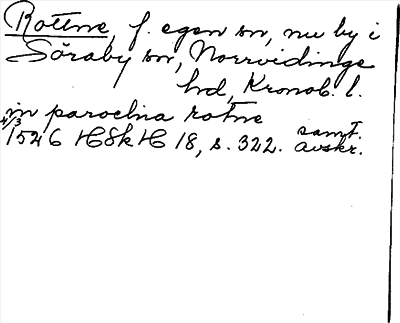 Rottne, f. egen sn, nu by i
Söraby sn, Norrvidinge
hd, Kronob. l.
in parochia rotne
4/3 1526 HSkH 18, s. 322. samt.
avskr.